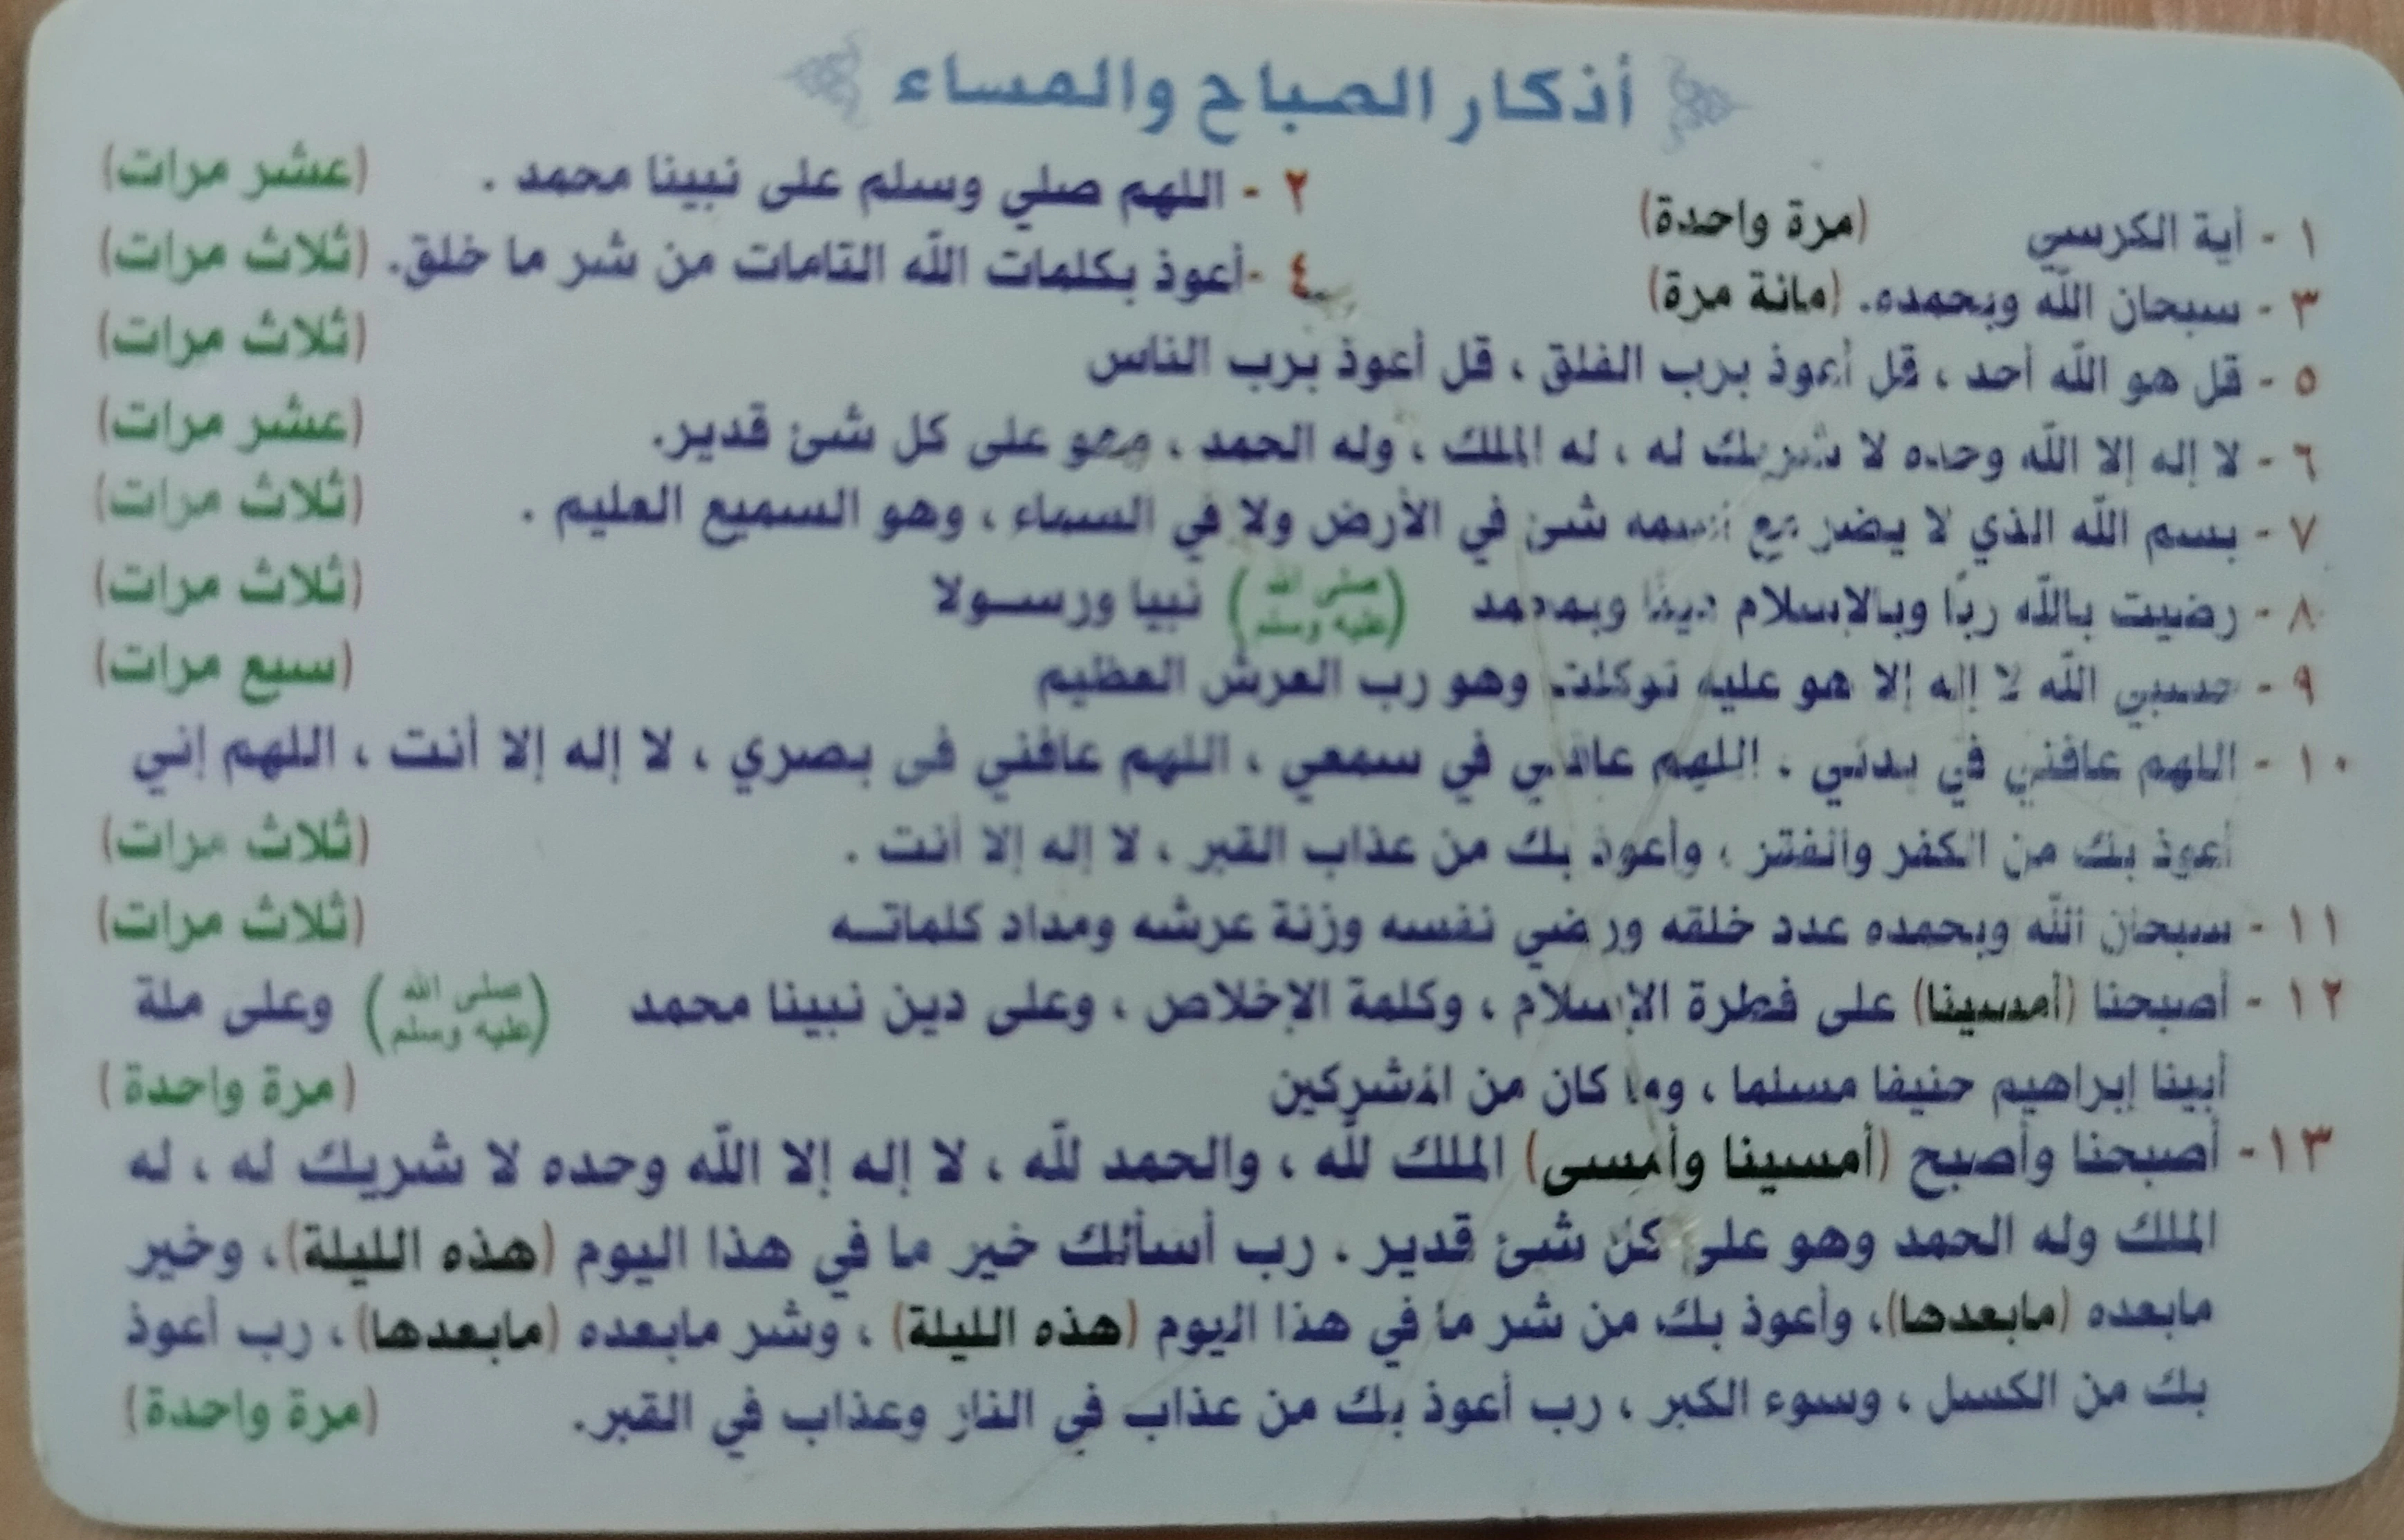 أذكار الصباح والمساء
١ - أية الكرسي (مرة واحدة)
٢ - اللهم صلي وسلم على نبينا محمد . (عشر مرات)
٣ - سبحان الله وبحمده. (مائة مرة)
٤ -أعوذ بكلمات الله التامات من شر ما خلق. (ثلاث مرات)
٥ - قل هو الله أحد ، قل أعوذ برب الفلق ، قل أعوذ برب الناس (ثلاث مرات)
٦ - لا إله إلا الله وحده لا شريك له ، له الملك ، وله الحمد ، وهو على كل شئ قدير. (عشر مرات)
٧ - بسم الله الذي لا يضر مع اسمه شئ في الأرض ولا في السماء ، وهو السميع العليم . (ثلاث مرات)
٨ - رضيت بالله ربًا وبالإسلام دينًا وبمحمد (صلى الله عليه وسلم) نبيا ورسولا (ثلاث مرات)
٩ - حسبي الله لا إله إلا هو عليه توكلت وهو رب العرش العظيم (سبع مرات)
١٠ - اللهم عافني في بدني ، اللهم عافني في سمعي ، اللهم عافني فى بصري ، لا إله إلا أنت ، اللهم إني
أعوذ بك من الكفر والفقر ، وأعوذ بك من عذاب القبر ، لا إله إلا أنت . (ثلاث مرات)
١١ - سبحان الله وبحمده عدد خلقه ورضي نفسه وزنة عرشه ومداد كلماتـه (ثلاث مرات)
١٢ - أصبحنا (أمسينا) على فطرة الإسلام ، وكلمة الإخلاص ، وعلى دين نبينا محمد (صلى الله عليه وسلم) وعلى ملة
أبينا إبراهيم حنيفا مسلما ، وما كان من المشركين (مرة واحدة)
١٣- أصبحنا وأصبح (أمسينا وأمسى) الملك لله ، والحمد لله ، لا إله إلا الله وحده لا شريك له ، له
الملك وله الحمد وهو على كل شئ قدير . رب أسألك خير ما في هذا اليوم (هذه الليلة)، وخير
مابعده (مابعدها)، وأعوذ بك من شر ما في هذا اليوم (هذه الليلة) ، وشر مابعده (مابعدها) ، رب أعوذ
بك من الكسل ، وسوء الكبر ، رب أعوذ بك من عذاب في النار وعذاب في القبر. (مرة واحدة)